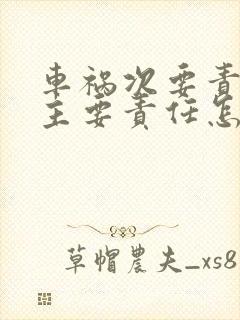 車禍次要責
主要責任怎
草帽農夫_xs8